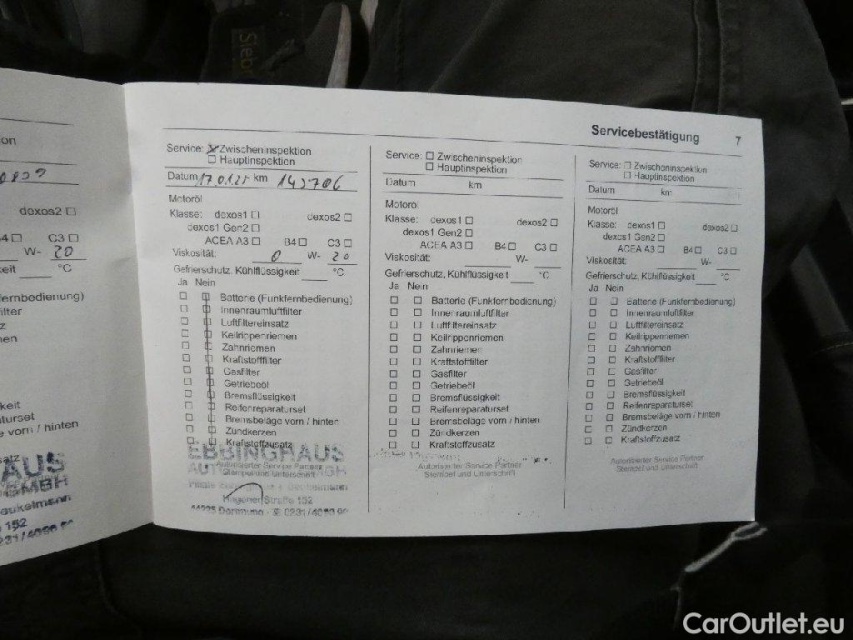 Servicebestätigung 7
on
dexos2 ☐
4☐ C3☐
W- 20
eit ____ °C
ernbedienung)
lter
z
en
keit
turset
e vorn / hinten
AUS
GMBH
aukelmann
152
Service: ☒ Zwischeninspektion
☐ Hauptinspektion
Datum 17.01.25 km 143706
Motoröl
Klasse: dexos1 ☐ dexos2 ☐
dexos1 Gen2 ☐
ACEA A3 ☐ B4☐ C3☐
Viskosität: 0 W- 20
Gefrierschutz, Kühlflüssigkeit ____ °C
Ja Nein
☐ ☐ Batterie (Funkfernbedienung)
☐ ☐ Innenraumluftfilter
☐ ☐ Luftfiltereinsatz
☐ ☐ Keilrippenriemen
☐ ☐ Zahnriemen
☐ ☐ Kraftstofffilter
☐ ☐ Gasfilter
☐ ☐ Getriebeöl
☐ ☐ Bremsflüssigkeit
☐ ☐ Reifenreparaturset
☐ ☐ Bremsbeläge vorn / hinten
☐ ☐ Zündkerzen
☐ ☐ Kraftstoffzusatz
EBBINGHAUS
Autorisierter Service Partner
Hagener Straße 152
Dortmund
Service: ☐ Zwischeninspektion
☐ Hauptinspektion
Datum km
Motoröl
Klasse: dexos1 ☐ dexos2 ☐
dexos1 Gen2 ☐
ACEA A3 ☐ B4☐ C3☐
Viskosität: ____ W-____
Gefrierschutz, Kühlflüssigkeit ____ °C
Ja Nein
☐ ☐ Batterie (Funkfernbedienung)
☐ ☐ Innenraumluftfilter
☐ ☐ Luftfiltereinsatz
☐ ☐ Keilrippenriemen
☐ ☐ Zahnriemen
☐ ☐ Kraftstofffilter
☐ ☐ Gasfilter
☐ ☐ Getriebeöl
☐ ☐ Bremsflüssigkeit
☐ ☐ Reifenreparaturset
☐ ☐ Bremsbeläge vorn / hinten
☐ ☐ Zündkerzen
☐ ☐ Kraftstoffzusatz
Autorisierter Service Partner
Stempel und Unterschrift
Service: ☐ Zwischeninspektion
☐ Hauptinspektion
Datum km
Motoröl
Klasse: dexos1 ☐ dexos2 ☐
dexos1 Gen2 ☐
ACEA A3 ☐ B4☐ C3☐
Viskosität: ____ W-____
Gefrierschutz, Kühlflüssigkeit ____ °C
Ja Nein
☐ ☐ Batterie (Funkfernbedienung)
☐ ☐ Innenraumluftfilter
☐ ☐ Luftfiltereinsatz
☐ ☐ Keilrippenriemen
☐ ☐ Zahnriemen
☐ ☐ Kraftstofffilter
☐ ☐ Gasfilter
☐ ☐ Getriebeöl
☐ ☐ Bremsflüssigkeit
☐ ☐ Reifenreparaturset
☐ ☐ Bremsbeläge vorn / hinten
☐ ☐ Zündkerzen
☐ ☐ Kraftstoffzusatz
Autorisierter Service Partner
Stempel und Unterschrift
CarOutlet.eu